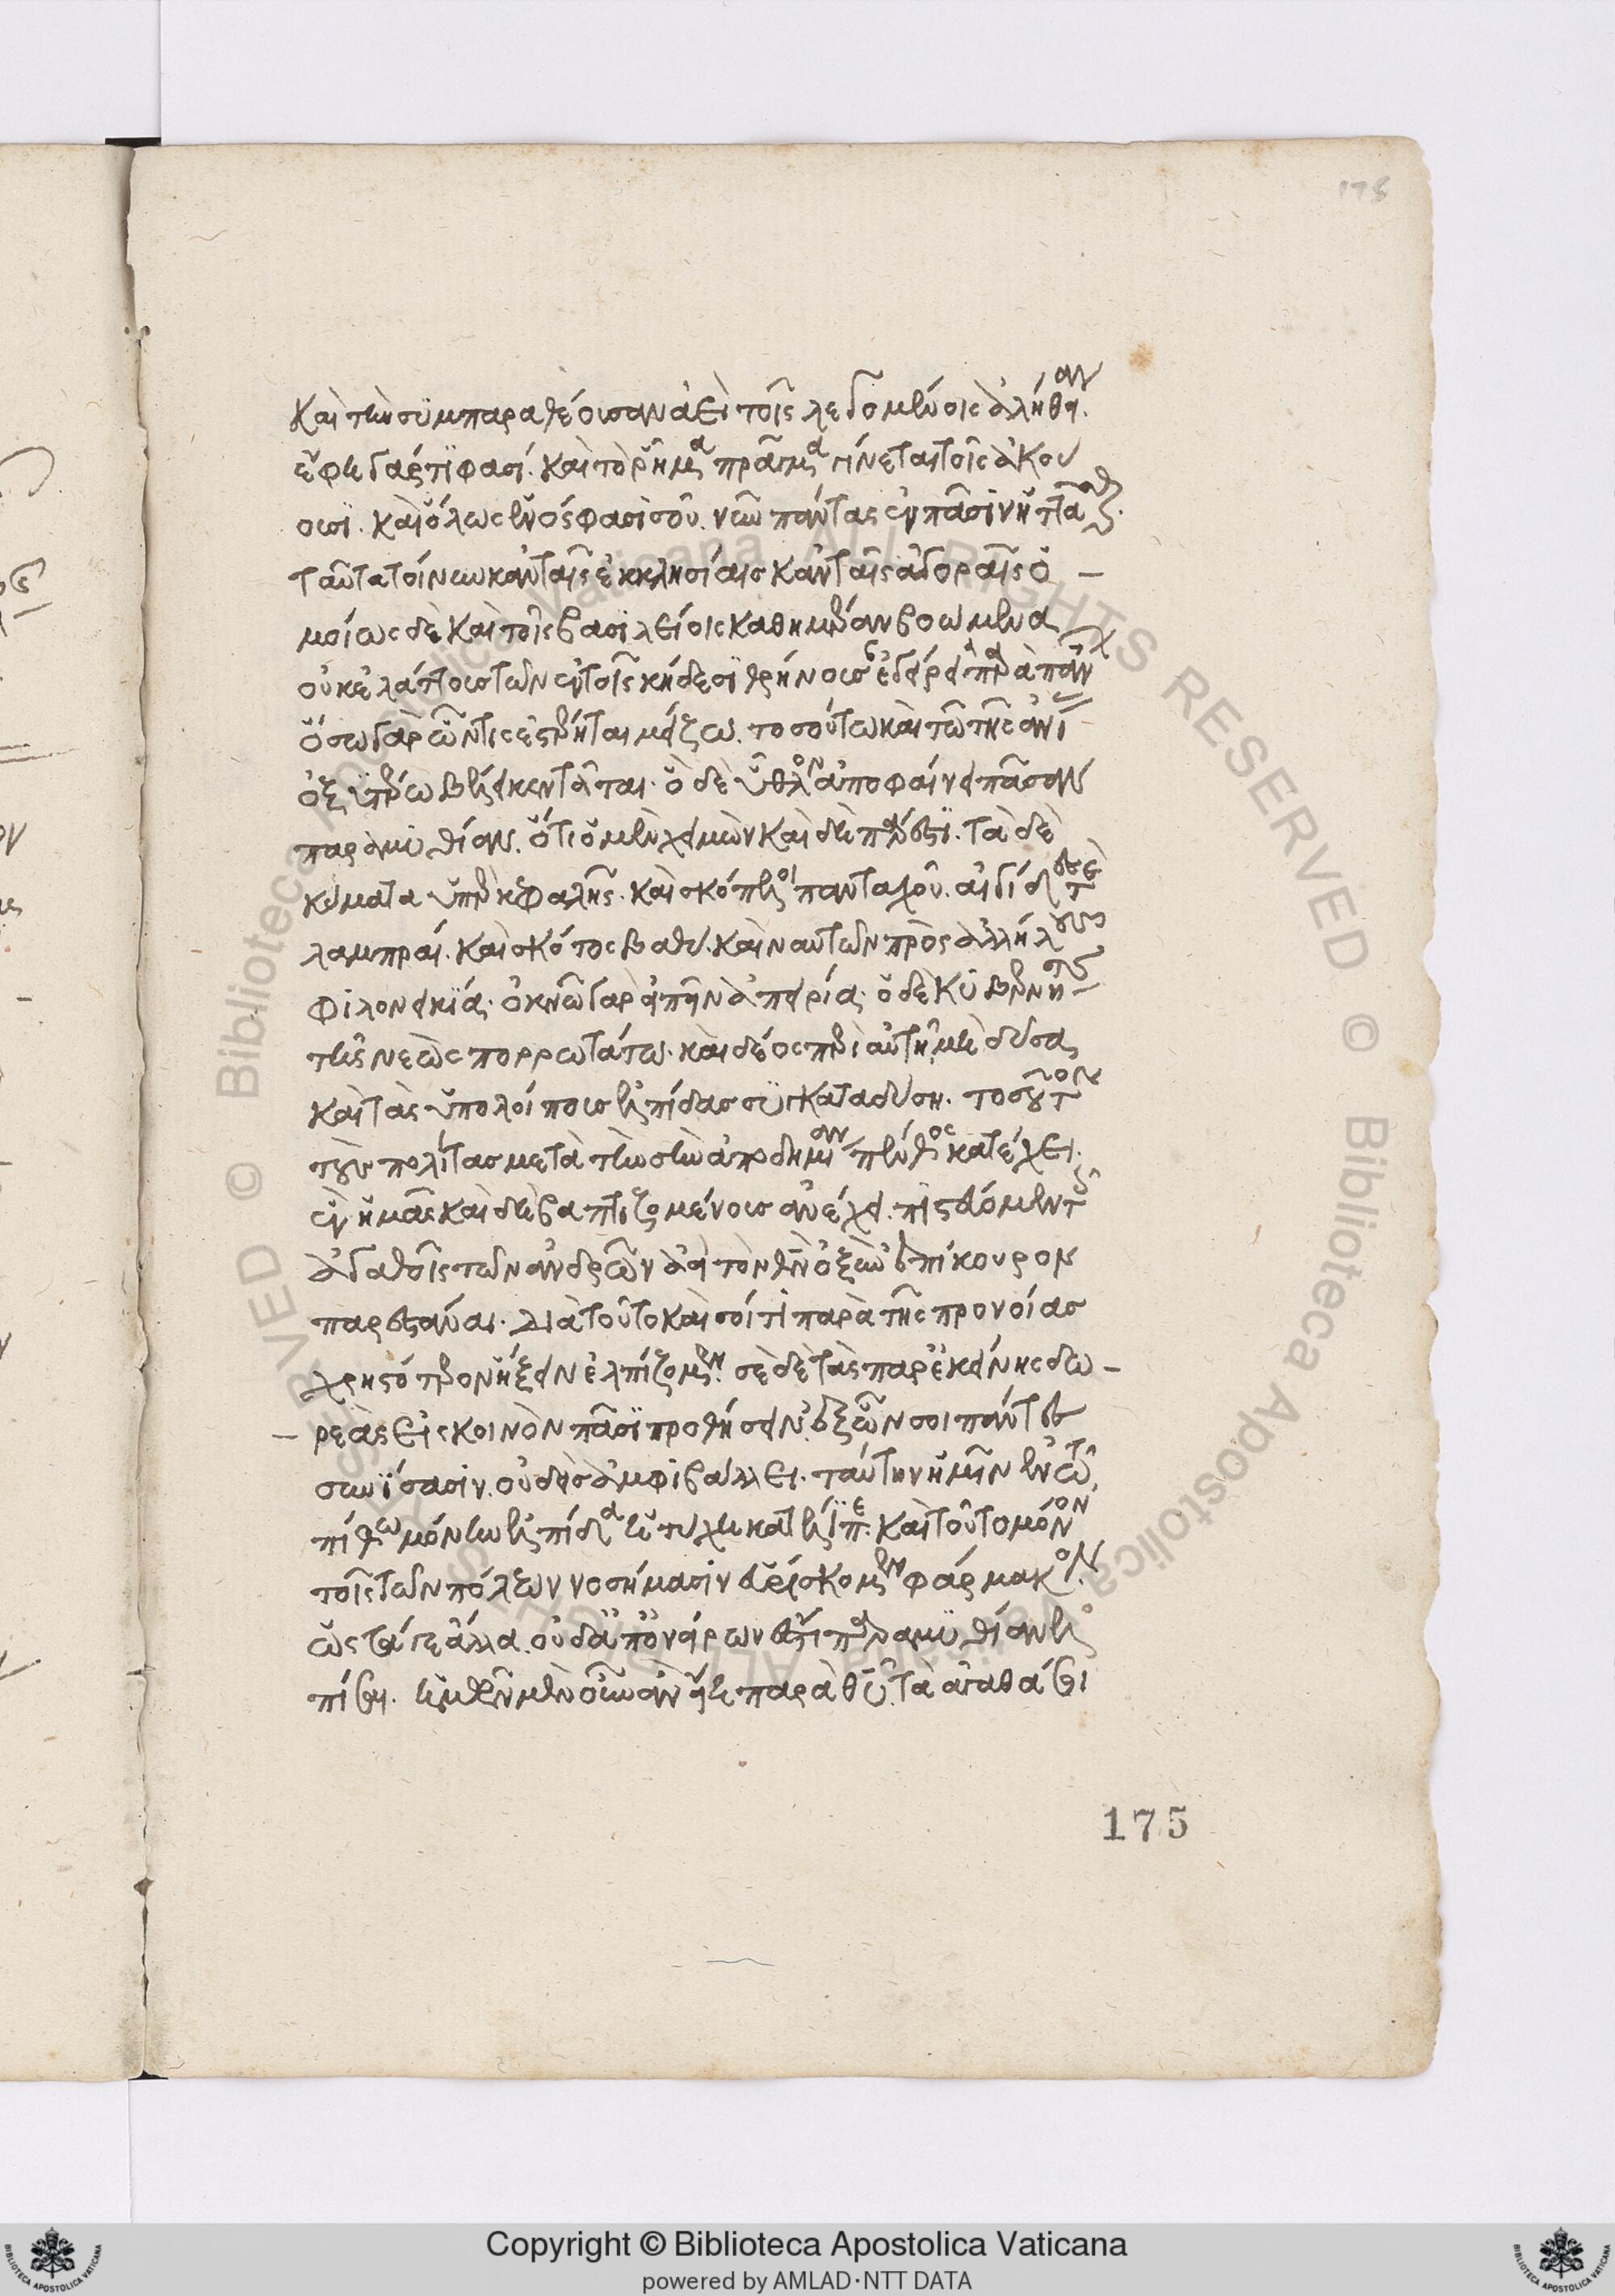 καὶ τὴν συμπαραθέουσαν ἀεὶ τοῖς λεγομένοις ἀλήθειαν.
ἔφη γάρ τί φασί. καὶ τὸ ῥῆμα πρᾶγμα γίνεται τοῖς ἀκού
ουσι. καὶ ὅλως ἑνός φασὶ σοῦ νῦν πάντας ἐν πᾶσιν ἡττᾶσθαι.
ταῦτα τοίνυν κἀν ταῖς ἐκκλησίαις κἀν ταῖς ἀγοραῖς ὁ –
μοίως δὲ καὶ τοῖς βασιλείοις καθημέραν βοώμενα
οὐκ ἐλάττους τῶν ἐν τοῖς κήδεσι θρήνους ἐγείρει παρὰ πᾶν
ὅσω γὰρ ὧν τις ἐστέρηται μείζω. τοσούτω καὶ τῶ τῆς ἀνί
ὀξυτέρω βέλει κεντᾶται. ὁ δὲ ὕθλον ἀποφαίνει πᾶσαν
παραμυθίαν. ὅτι ὁ μὲν χειμὼν καὶ δὴ πάρεστι. τὰ δὲ
κύματα ὑπὲρ κεφαλῆς. καὶ σκόπελοι πανταχοῦ. αἰγίδες τε
λαμπραί. καὶ σκότος βαθύ. καὶ ναυτῶν πρὸς ἀλλήλους
φιλονεικία. ὀκνῶ γὰρ εἰπεῖν ἀπειρία. ὁ δὲ κυβερνήτης
τῆς νεὼς πορρωτάτω. καὶ δέος περὶ αὐτῆ μὴ δῦσα
καὶ τὰς ὑπολοίπους ἐλπίδας συγκαταδύση. τοσοῦτον
τοὺς πολίτας μετὰ τὴν σὴν ἀποδημίαν πένθος κατέχει.
ἐν ἡμᾶς καὶ δὴ βαπτιζομένους ἀνέχει. πιστευόμεν τοῖς
ἀγαθοῖς τῶν ἀνδρῶν ἀεὶ τὸν θεὸν ὀξὺν ἐπίκουρον
παρεστάναι. διὰ τοῦτο καὶ σοί τι παρὰ τῆς προνοίας
χρηστότερον ἥξειν ἐλπίζομεν. σὲ δὲ τὰς παρ' ἐκείνης δω –
– ρεὰς εἰς κοινὸν πᾶσι προθήσειν. ἐξ ὧν σοι πάντες
συνίσασιν. οὐδεὶς ἀμφιβάλλει. ταύτην ἡμῖν ἐν τῶ
πίθω μόνην ἐλπίδα ἡ τύχη κατέλιπε. καὶ τοῦτο μόνον
τοῖς τῶν πόλεων νοσήμασιν εὑρίσκομεν φάρμακον.
ὡς τά γε ἄλλα. οὐδ' ἀπ' ὀνείρων ἔστι παραμυθίαν ἐλ
πίσαι. ἡμῖν μὲν οὖν ἂν εἴη παρὰ θεοῦ τὰ ἀγαθά σοι
175
Copyright © Biblioteca Apostolica Vaticana
powered by AMLAD·NTT DATA